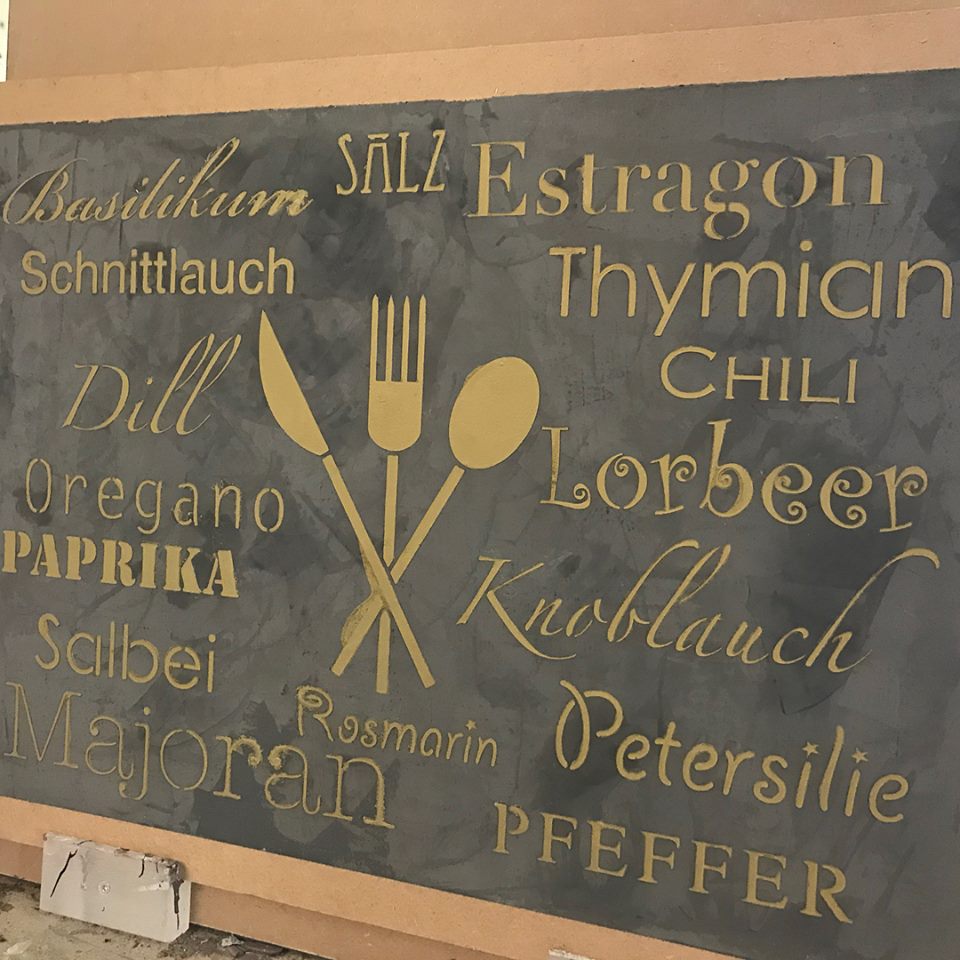 Basilikum
SALZ
Estragon
Schnittlauch
Thymian
Dill
CHILI
Oregano
Lorbeer
PAPRIKA
Knoblauch
Salbei
Majoran
Rosmarin
Petersilie
PFEFFER